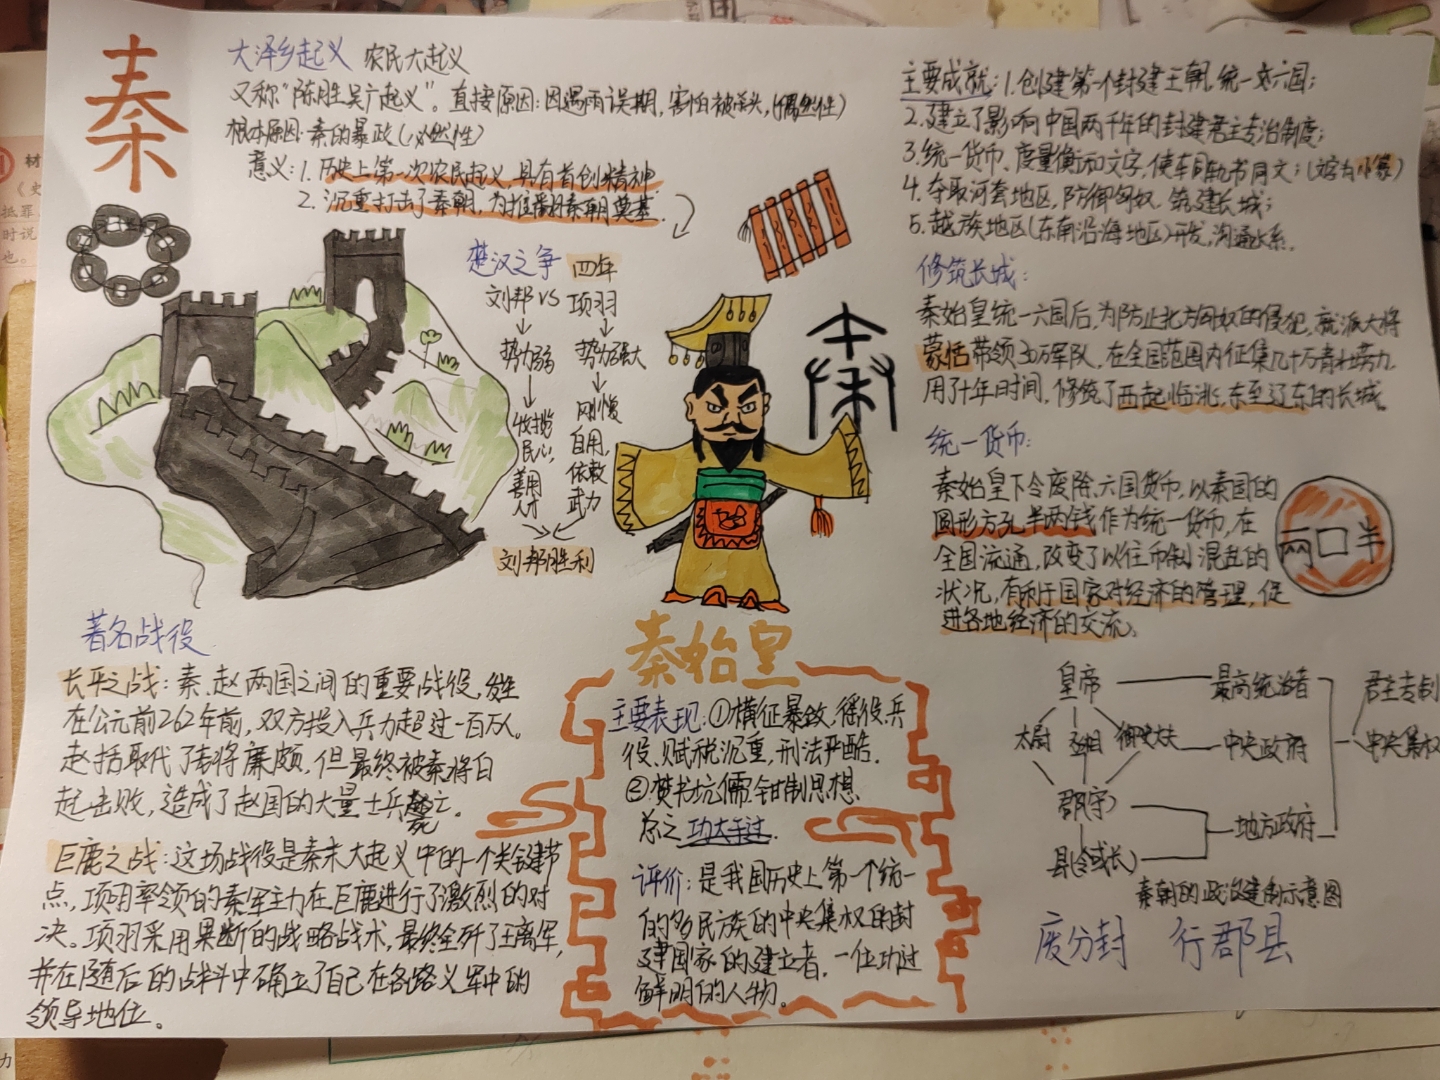 秦
大泽乡起义 农民大起义
又称“陈胜吴广起义”。直接原因:因遇雨误期,害怕被杀头,(偶然性)
根本原因:秦的暴政(必然性)
意义:1.历史上第一次农民起义,具有首创精神.
2.沉重打击了秦朝,为推翻秦朝奠基.
楚汉之争 四年
刘邦 VS 项羽
势力弱 势力强大
收揽民心,善用人才
刚愎自用,依赖武力
刘邦胜利
秦
主要成就:1.创建第一个封建王朝,统一六国;
2.建立了影响中国两千年的封建君主专治制度;
3.统一货币、度量衡和文字,使车同轨书同文;(文字为小篆)
4.夺取河套地区,防御匈奴,筑建长城;
5.越族地区(东南沿海地区)开发,沟通水系.
修筑长城:
秦始皇统一六国后,为防止北方匈奴的侵犯,就派大将
蒙恬带领30万军队,在全国范围内征集几十万青壮劳力
用了十年时间,修筑了西起临洮,东至辽东的长城。
统一货币:
秦始皇下令废除六国货币,以秦国的
圆形方孔半两钱作为统一货币,在
全国流通,改变了以往币制混乱的
状况,有利于国家对经济的管理,促
进各地经济的交流。
两 半
著名战役
长平之战:秦、赵两国之间的重要战役,发生
在公元前262年前,双方投入兵力超过一百万人。
赵括取代了老将廉颇,但最终被秦将白
起击败,造成了赵国的大量士兵死亡.
巨鹿之战:这场战役是秦末大起义中的一个关键节
点,项羽率领的秦军主力在巨鹿进行了激烈的对
决。项羽采用果断的战略战术,最终全歼了王离军,
并在随后的战斗中确立了自己在各路义军中的
领导地位。
秦始皇
主要表现:①横征暴敛,徭役、兵
役、赋税沉重,刑法严酷.
②焚书坑儒,钳制思想.
总之功大于过.
评价:是我国历史上第一个统一
的多民族的中央集权的封
建国家的建立者,一位功过
鲜明的人物。
皇帝 最高统治者 君主专制
太尉 丞相 御史大夫 中央政府 中央集权
郡(守) 地方政府
县(令或长)
秦朝的政治建制示意图
废分封 行郡县